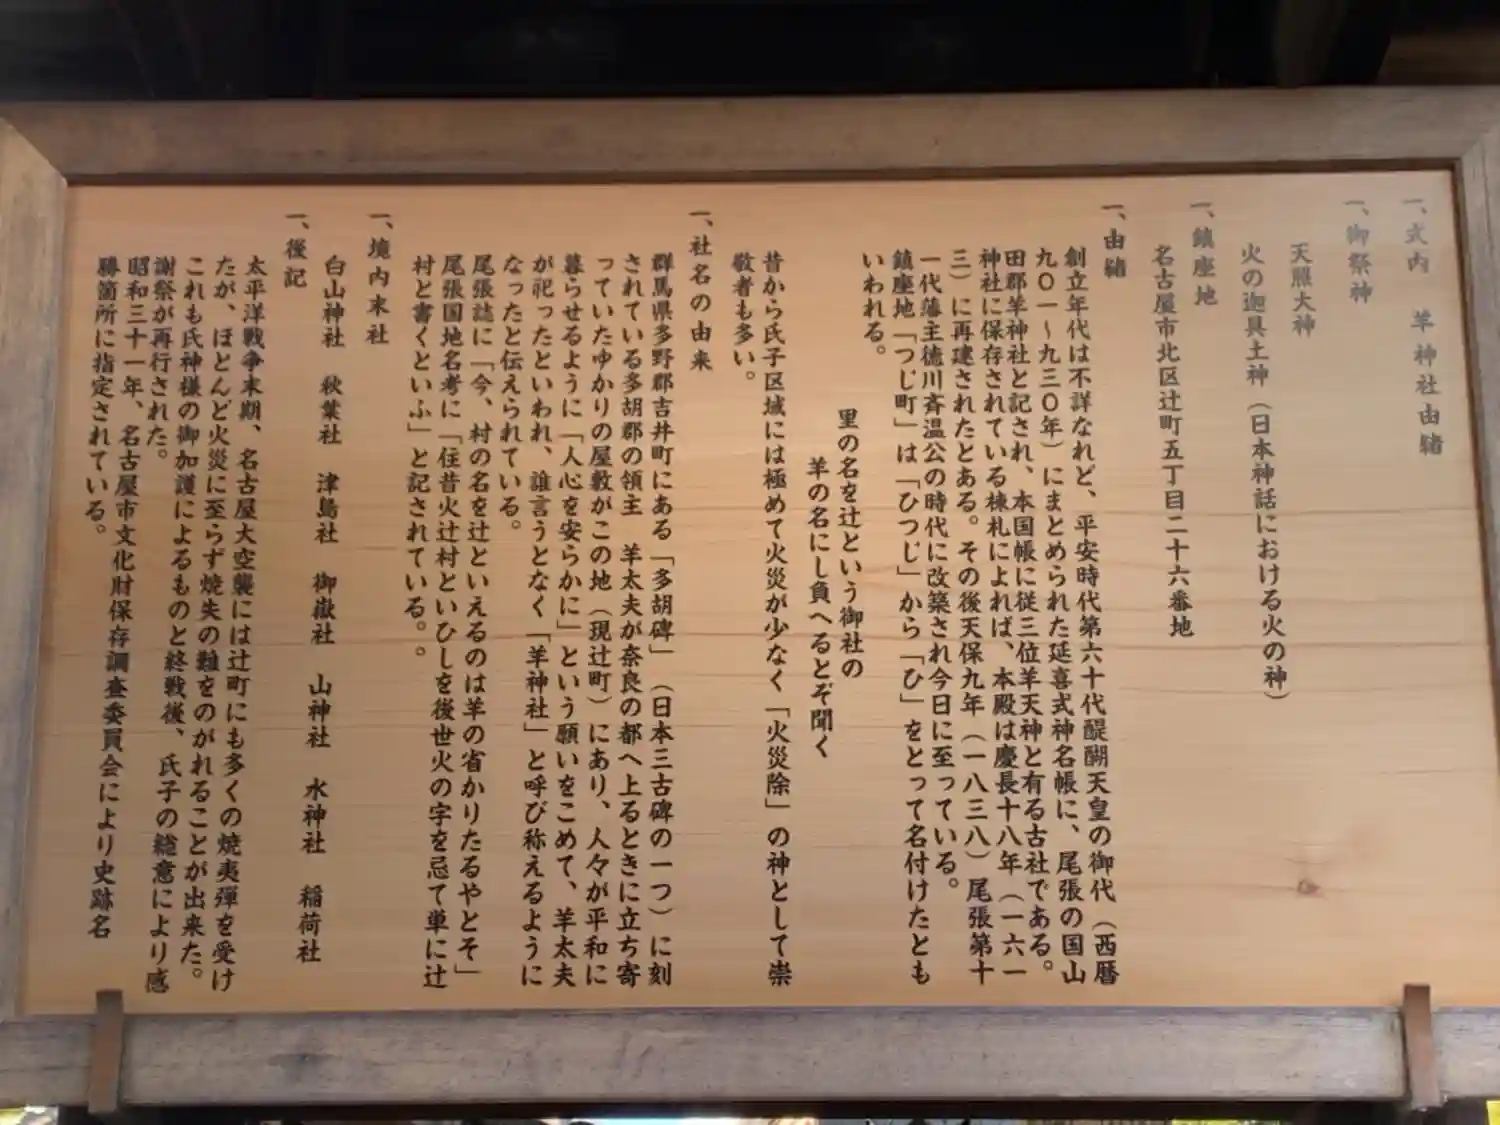 一、式内　羊神社由緒
一、御祭神
天照大神
火の迦具土神（日本神話における火の神）
一、鎮座地
名古屋市北区辻町五丁目二十六番地
一、由緒
創立年代は不詳なれど、平安時代第六十代醍醐天皇の御代（西暦
九〇一～九三〇年）にまとめられた延喜式神名帳に、尾張の国山
田郡羊神社と記され、本国帳に従三位羊天神と有る古社である。
神社に保存されている棟札によれば、本殿は慶長十八年（一六一
三）に再建されたとある。その後天保九年（一八三八）尾張第十
一代藩主徳川斉温公の時代に改築され今日に至っている。
鎮座地「つじ町」は「ひつじ」から「ひ」をとって名付けたとも
いわれる。
里の名を辻という御社の
羊の名にし負へるとぞ聞く
昔から氏子区域には極めて火災が少なく「火災除」の神として崇
敬者も多い。
一、社名の由来
群馬県多野郡吉井町にある「多胡碑」（日本三古碑の一つ）に刻
されている多胡郡の領主　羊太夫が奈良の都へ上るときに立ち寄
っていたゆかりの屋敷がこの地（現辻町）にあり、人々が平和に
暮らせるように「人心を安らかに」という願いをこめて、羊太夫
が祀ったといわれ、誰言うとなく「羊神社」と呼び称えるように
なったと伝えられている。
尾張誌に「今、村の名を辻といえるのは羊の省かりたるやとそ」
尾張国地名考に「往昔火辻村といひしを後世火の字を忌て単に辻
村と書くといふ」と記されている。。
一、境内末社
白山神社　秋葉社　津島社　御嶽社　山神社　水神社　稲荷社
一、後記
太平洋戦争末期、名古屋大空襲には辻町にも多くの焼夷弾を受け
たが、ほとんど火災に至らず焼失の難をのがれることが出来た。
これも氏神様の御加護によるものと終戦後、氏子の総意により感
謝祭が再行された。
昭和三十一年、名古屋市文化財保存調査委員会により史跡名
勝箇所に指定されている。